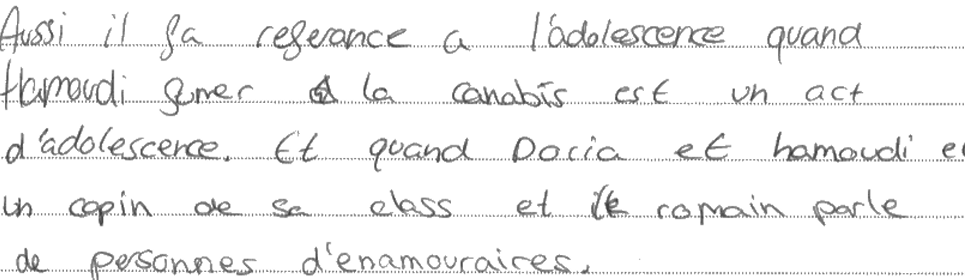 Aussi il fa referance a l'adolescence quand
Hamoudi fumer la canabis est un act
d'adolescence. Et quand Doria et hamoudi e
un copin de sa class et le romain parle
de personnes d'enamouraires.